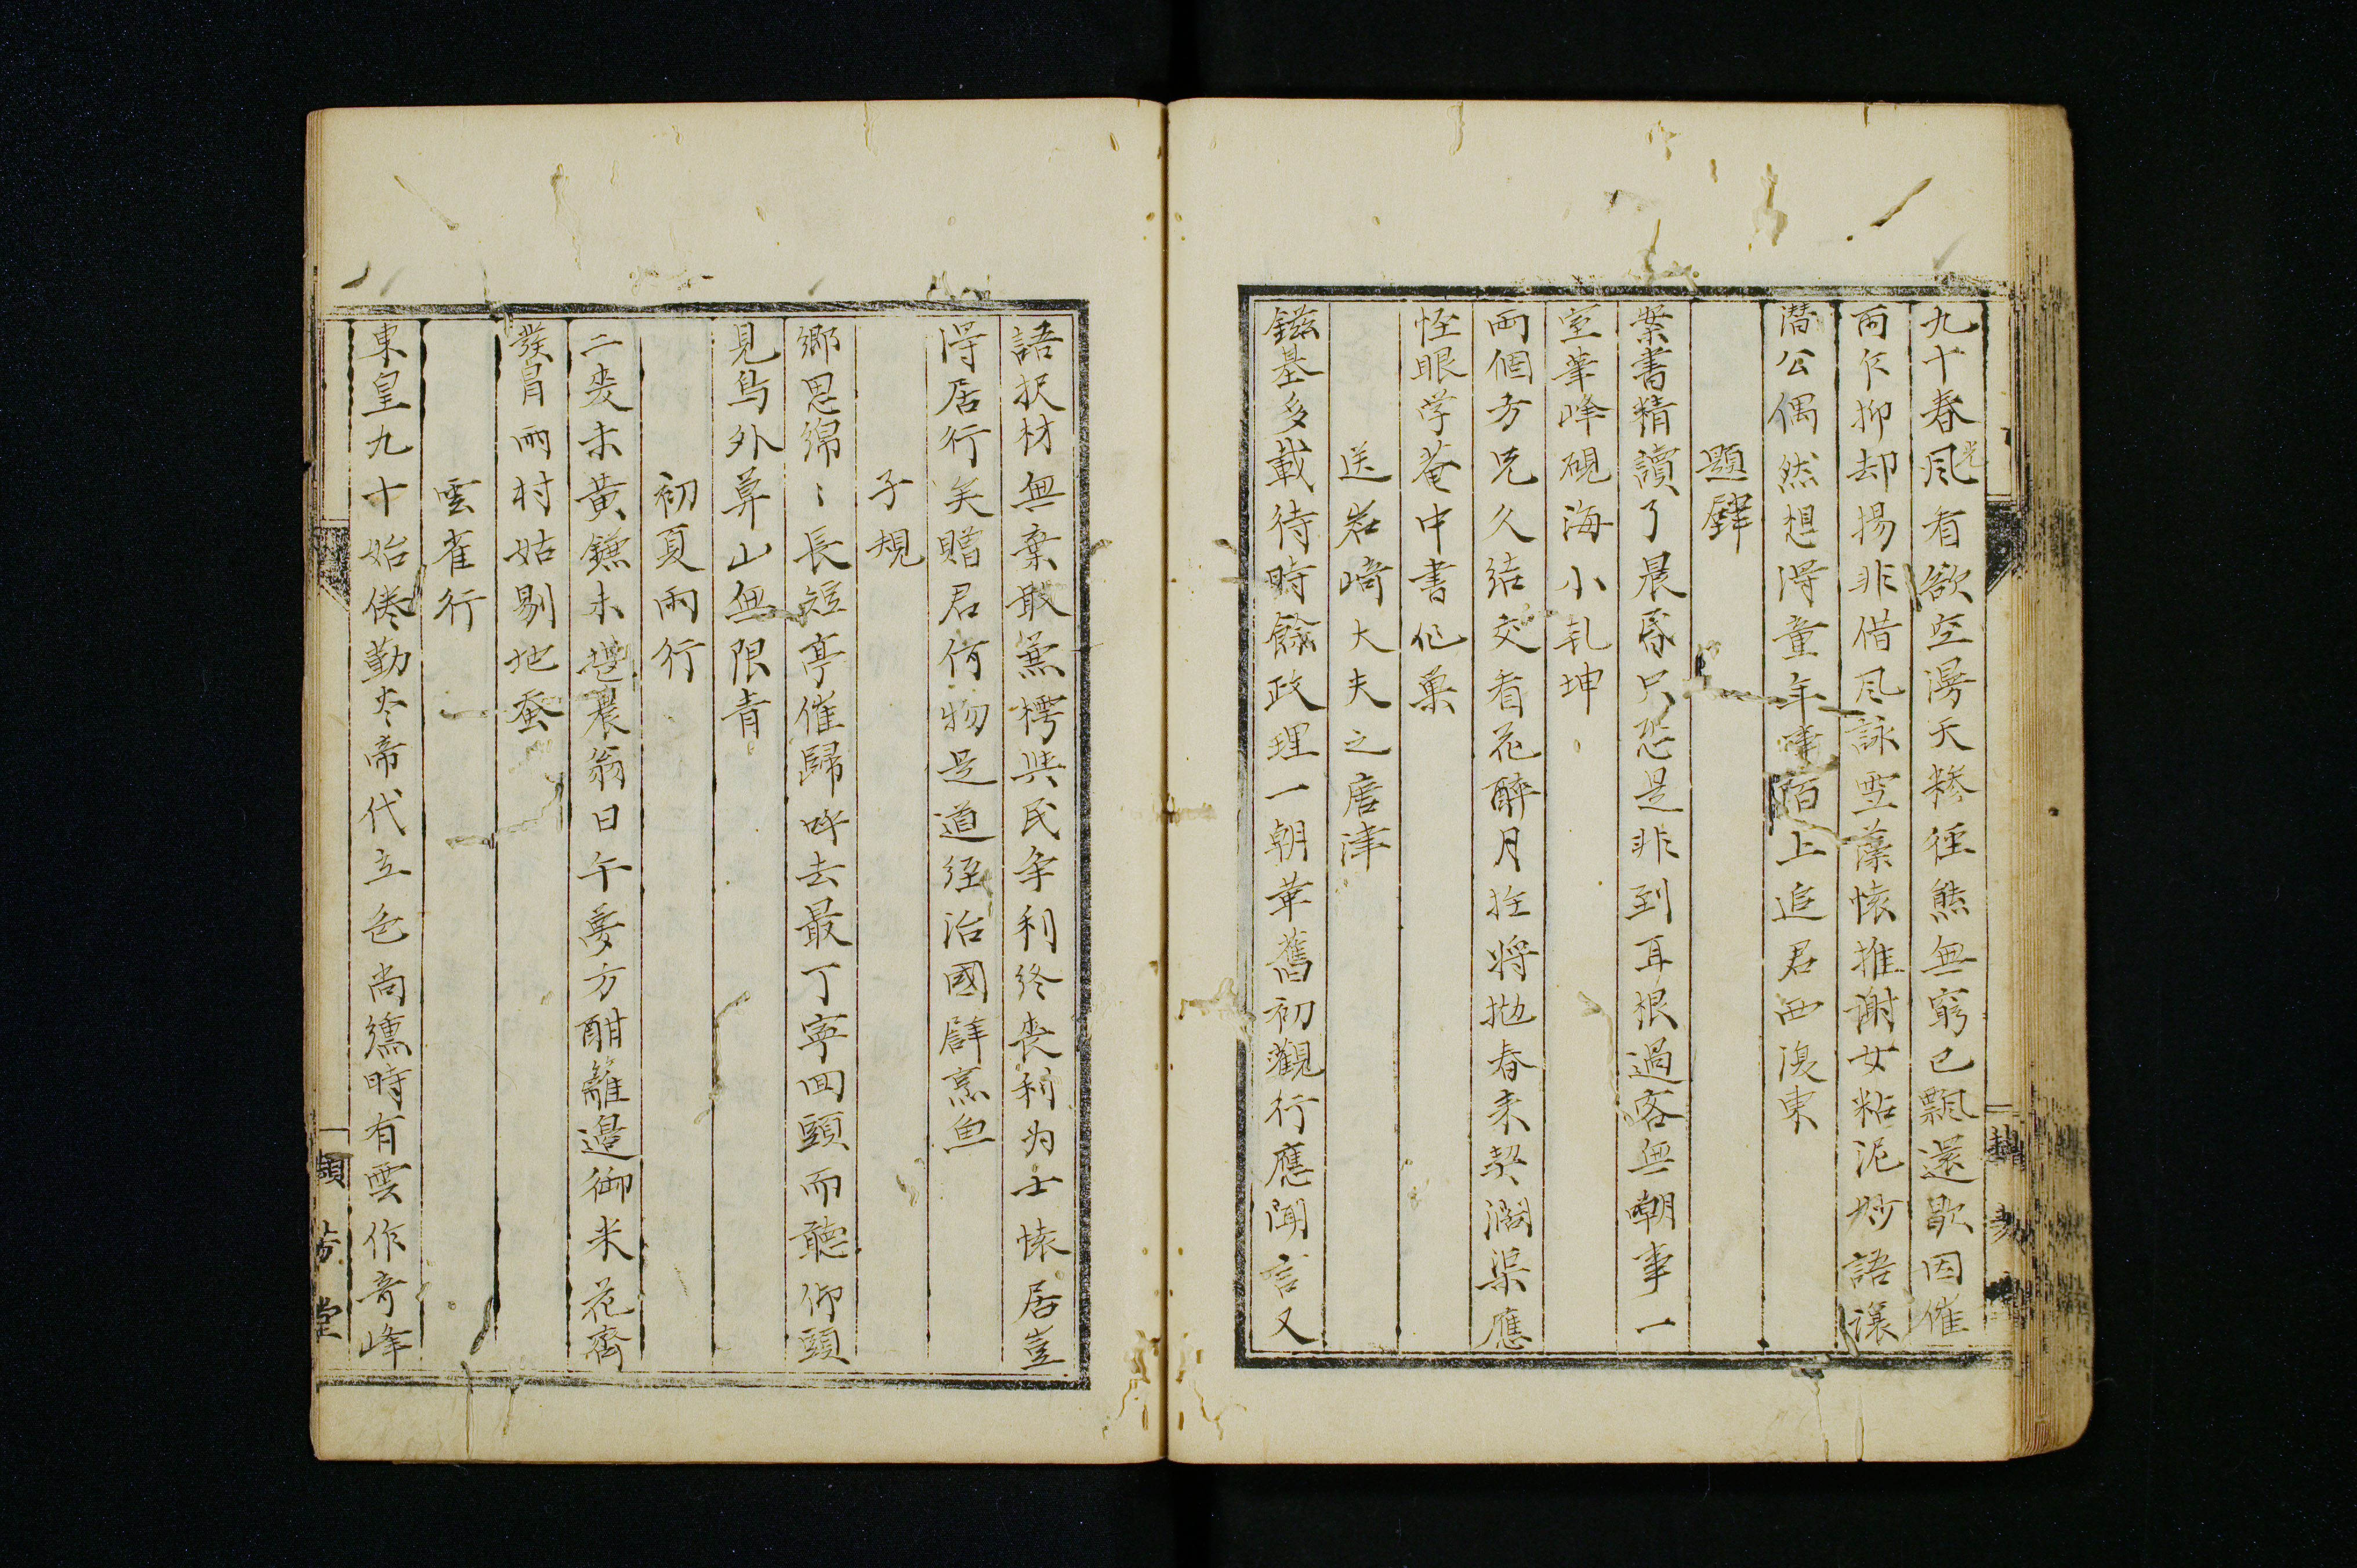 九十春風光看欲空漫天糝徑態無窮已飄還歇因催
雨乍抑却揚非借風詠雪藻懐推謝女粘泥妙語讓
潜公偶然想得童年事陌上追君西復東
題壁
案書精讀了晨昏只恐是非到耳根過客無嘲事一
室筆峰硯海小乹坤
両個方兄久結交看花醉月拄将抛春来契濶渠應
怪眼学菴中書作巢
送岩﨑大夫之唐津
鎡基多載待時餘政理一朝革舊初觀行應聞言又
語択材無棄散兼樗與民争利終喪利为士懐居豈
得居行矣贈君何物是道經治國辟烹魚
子規
郷思綿〻長短亭催歸呼去最丁寧回頭而聽仰頭
見鳥外算山無限青
初夏雨行
二麦未黄鎌未農翁日午夢方酣籬邉御米花齊
發冒雨村姑剔地蚕
雲雀行
東皇九十始倦勤炎帝代立色尚纁時有雲作奇峰
芳堂